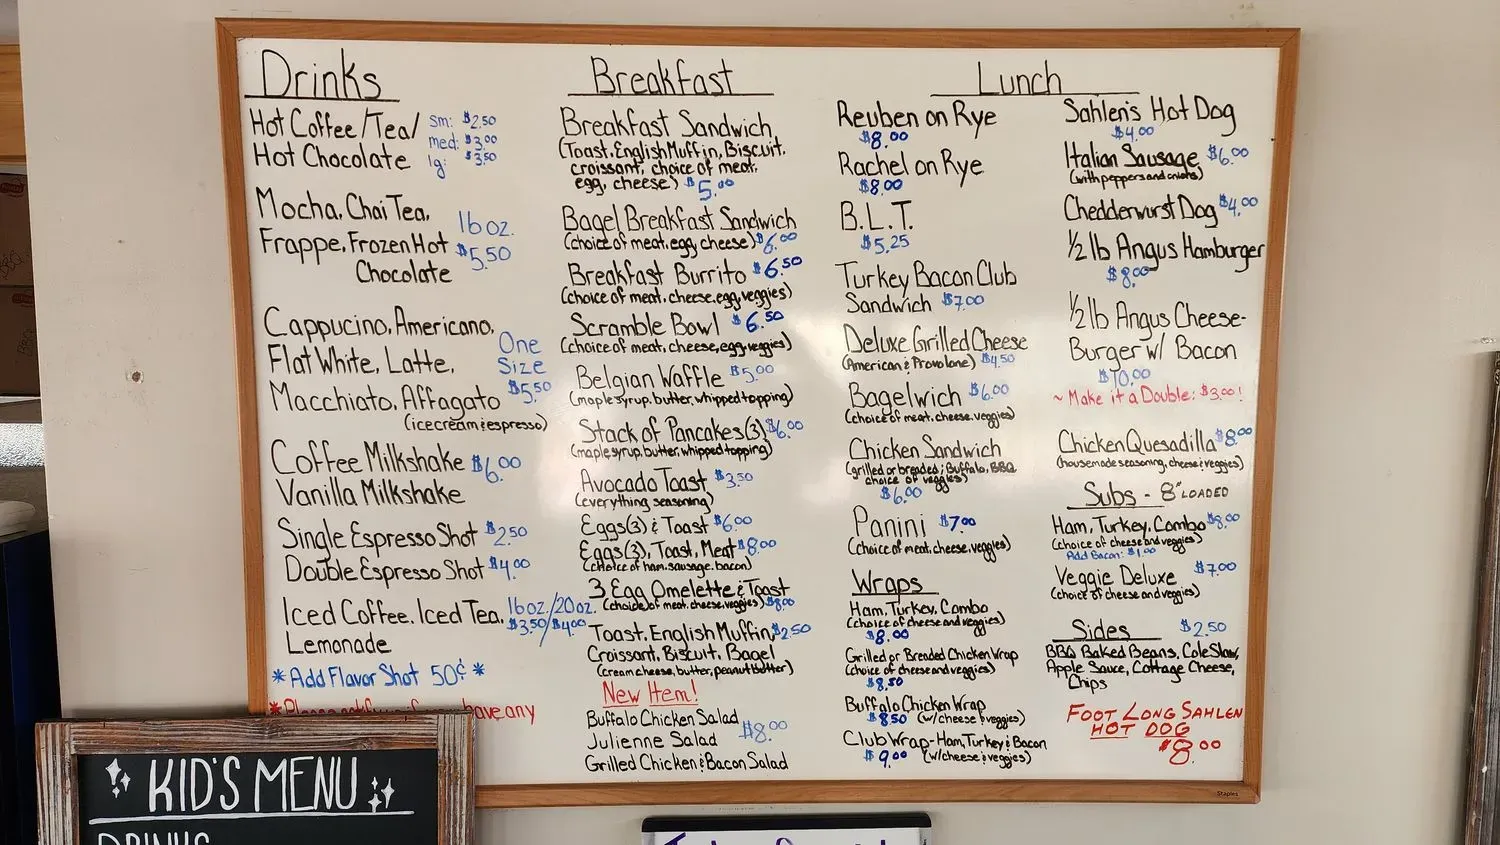 Drinks
Hot Coffee/Tea/
Hot Chocolate
sm: $2.50
med: $3.00
lg: $3.50
Mocha, Chai Tea,
Frappe, Frozen Hot
Chocolate
16 oz.
$5.50
Cappucino, Americano,
Flat White, Latte,
Macchiato, Affagato
(icecream & espresso)
One
Size
$5.50
Coffee Milkshake $6.00
Vanilla Milkshake
Single Espresso Shot $2.50
Double Espresso Shot $4.00
Iced Coffee, Iced Tea,
Lemonade
16oz./20oz.
$3.50/$4.00
*Add Flavor Shot 50¢ *
*Please notify us if you have any
Breakfast
Breakfast Sandwich
(Toast, English Muffin, Biscuit,
croissant, choice of meat,
egg, cheese) $5.00
Bagel Breakfast Sandwich
(choice of meat, egg, cheese) $6.00
Breakfast Burrito $6.50
(choice of meat, cheese, egg, veggies)
Scramble Bowl $6.50
(choice of meat, cheese, egg, veggies)
Belgian Waffle $5.00
(maple syrup, butter, whipped topping)
Stack of Pancakes(3) $6.00
(maple syrup, butter, whipped topping)
Avocado Toast $3.50
(everything seasoning)
Eggs(3) & Toast $6.00
Eggs(3), Toast, Meat $8.00
(choice of ham, sausage, bacon)
3 Egg Omelette & Toast
(choice of meat, cheese, veggies) $8.00
Toast, English Muffin $2.50
Croissant, Biscuit, Bagel
(cream cheese, butter, peanut butter)
New Item!
Buffalo Chicken Salad
Julienne Salad $8.00
Grilled Chicken & Bacon Salad
Lunch
Reuben on Rye
$8.00
Rachel on Rye
$8.00
B.L.T.
$5.25
Turkey Bacon Club
Sandwich $7.00
Deluxe Grilled Cheese
(American & Provolone) $4.50
Bagelwich $6.00
(choice of meat, cheese, veggies)
Chicken Sandwich
(grilled or breaded; Buffalo, BBQ
choice of veggies)
$6.00
Panini $7.00
(choice of meat, cheese, veggies)
Wraps
Ham, Turkey, Combo
(choice of cheese and veggies)
$8.00
Grilled or Breaded Chicken Wrap
(choice of cheese and veggies)
$8.50
Buffalo Chicken Wrap
$8.50 (w/cheese & veggies)
Club Wrap-Ham, Turkey & Bacon
$9.00 (w/cheese & veggies)
Sahlen's Hot Dog
$4.00
Italian Sausage $6.00
(with peppers and onions)
Chedderwurst Dog $4.00
½ lb Angus Hamburger
$8.00
½ lb Angus Cheese-
Burger w/ Bacon
$10.00
~ Make it a Double: $3.00!
Chicken Quesadilla $8.00
(housemade seasoning, cheese & veggies)
Subs - 8" LOADED
Ham, Turkey, Combo $8.00
(choice of cheese and veggies)
Add Bacon: $1.00
Veggie Deluxe $7.00
(choice of cheese and veggies)
Sides $2.50
BBQ Baked Beans, Cole Slaw,
Apple Sauce, Cottage Cheese,
Chips
FOOT LONG SAHLEN
HOT DOG
$8.00
Staples
KID'S MENU
DRINKS